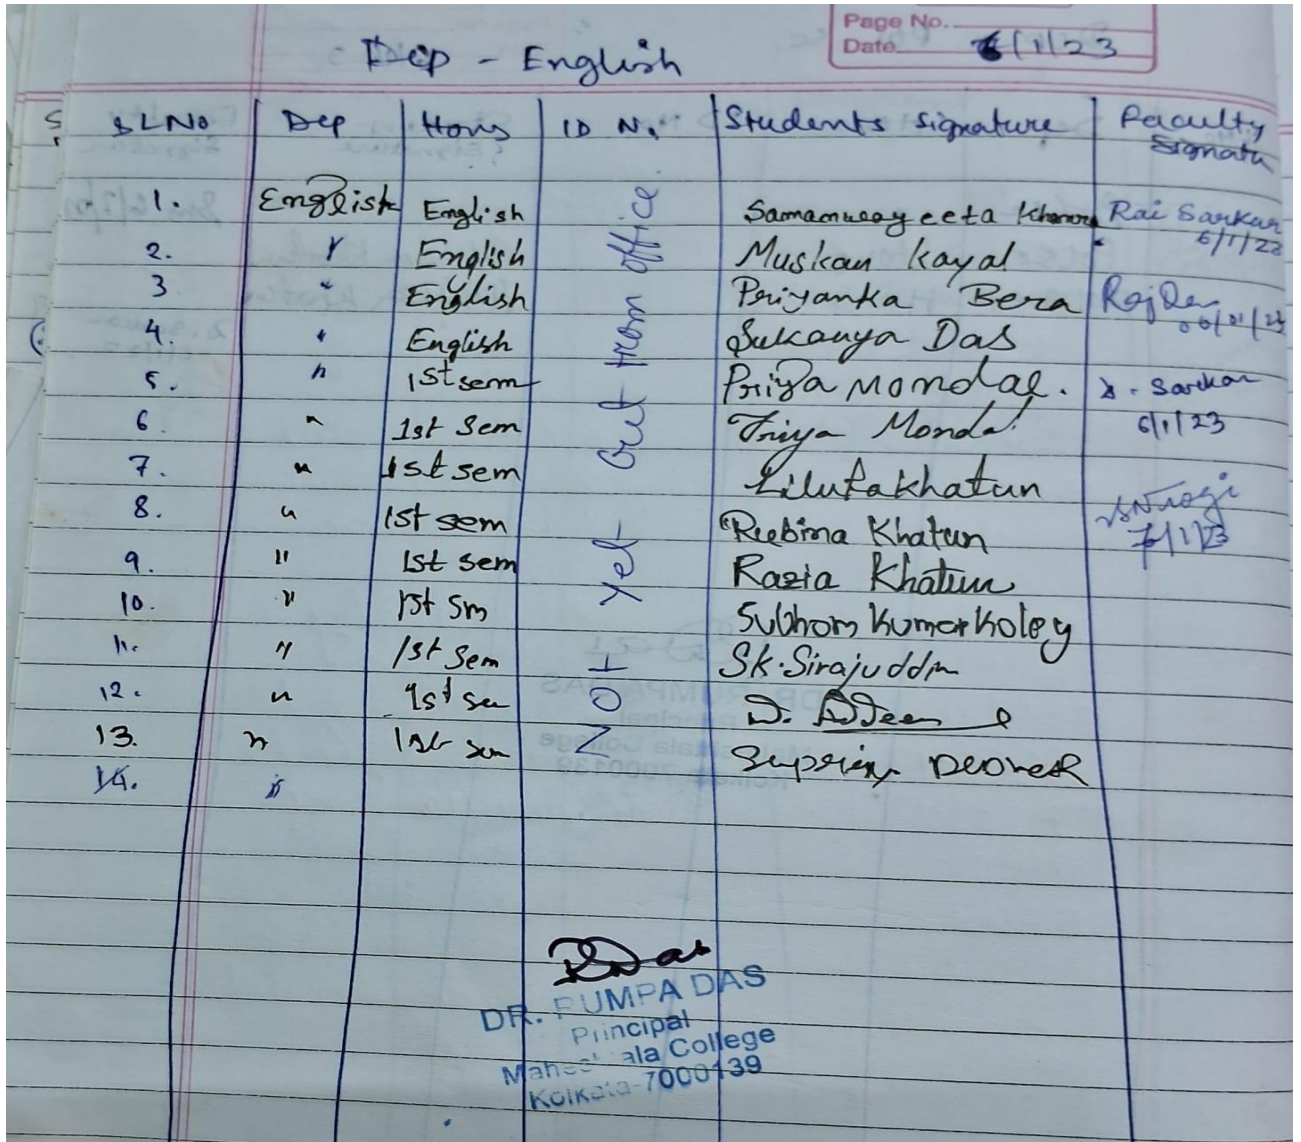 Page No.
Date 6/1/23
Dep - English
SL No Dep Hons ID N. Students Signature Faculty Signatu
1. English English Rai Sarkar
6/1/23
2. " English Muskan Kayal
3 " English Priyanka Bera Raj
4. " English Sukanya Das
5. " 1st sem Priya Mondal. Sarkar
6. " 1st Sem Triya Mondal 6/1/23
7. " 1st sem Lilufa khatun
8. " 1st sem Rubina Khatun
7/1/23
9. " 1st sem Razia Khatun
10. " 1st Sm Subhom Kumar Koley
11. " 1st Sem Sk. Sirajuddin
12. " 1st se
13. " 1st sem
14. "
Not yet out from office.
DR. RUMPA DAS
Principal
College
Kolkata-7000139